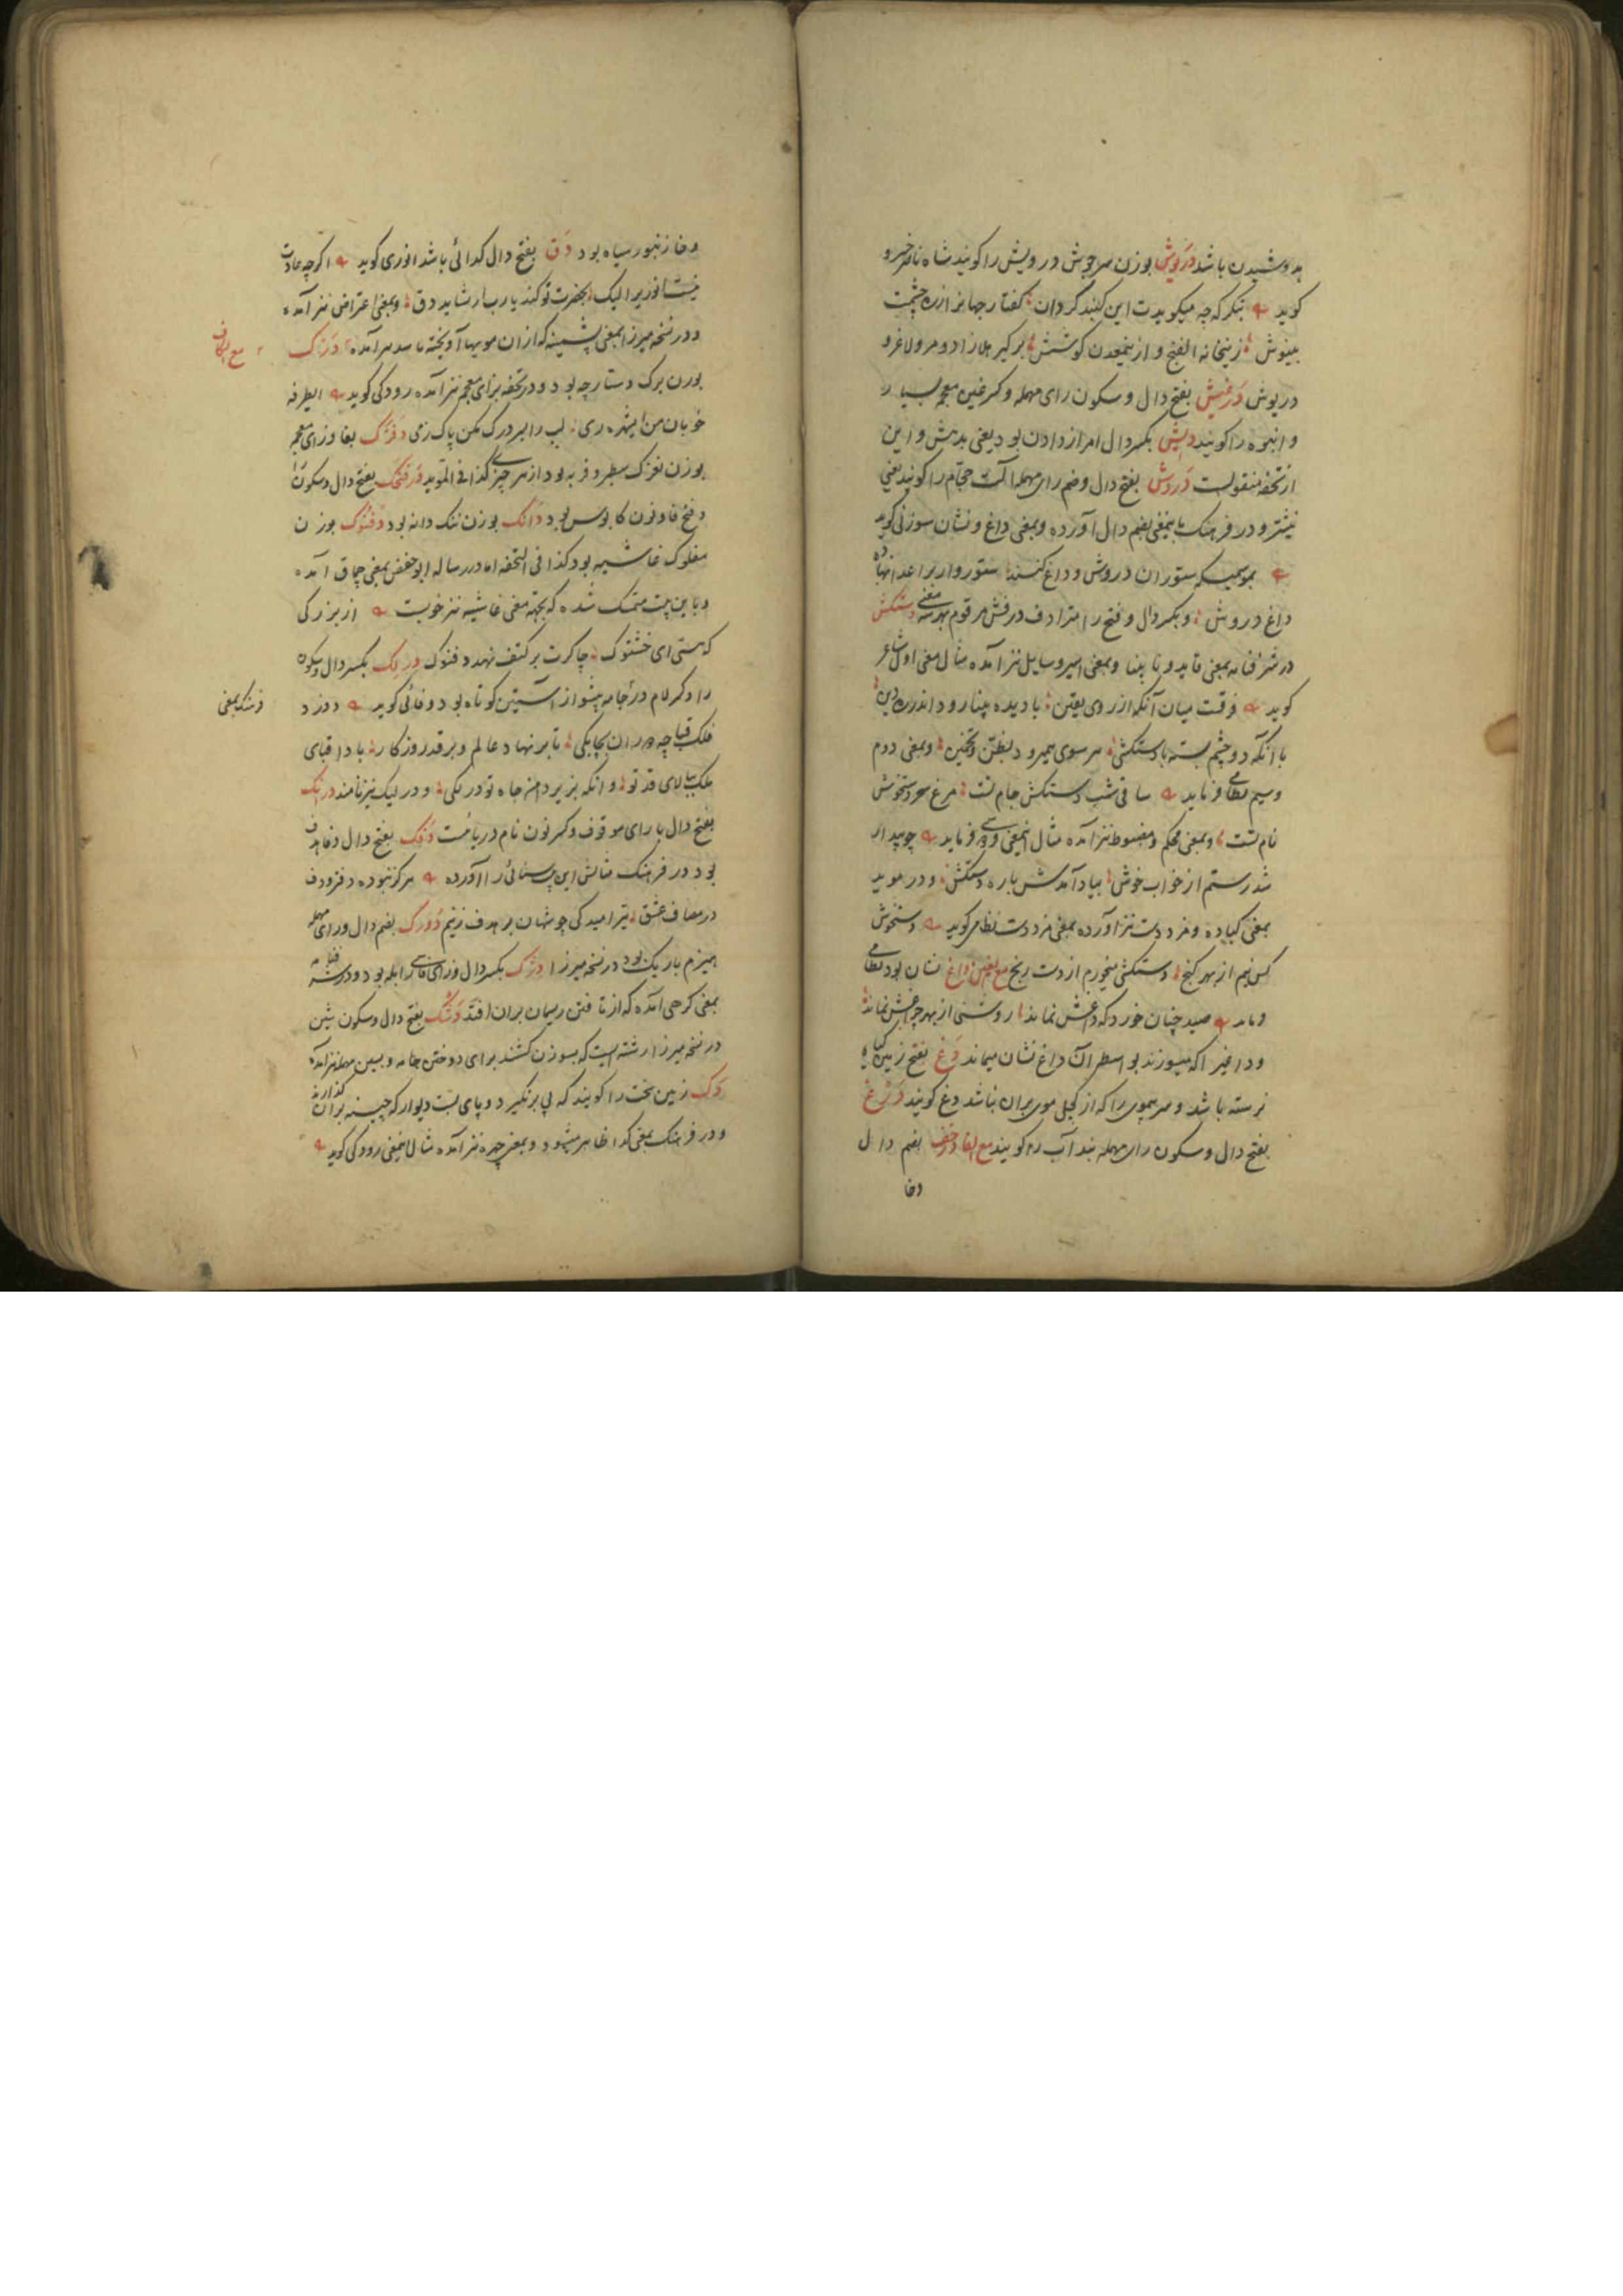 بدوشیدن باشد درَیوش بوزن سرجوش درویش را کویند شاه ناصر خسرو
کوید بنکر که چه میکویدت این کنبد کردان کفتار جهانر از ره چشمت
بینوش زینخانه الفنج و ازینمعدن کوشش برکیر هلا زاد و مرو لاغر و
دریوش دَرغیش بفتح دال و سکون رای مهمله و کسر غین معجمه بسیار
و انبوه را کویند دِیِش بکسر دال امر از دادن بود یعنی بدهش و این
از تحفه منقولست دَروش بفتح دال و ضم رای مهمله آلت حجّام را کویند یعنی
نیشتر و در فرهنک باینمعنی بضم دال آورده و بمعنی داغ و نشان سوزنی کوید
بموسمیکه ستوران دروش و داغ کنند ستوروار بر اعدا نهاده
داغ دروش و بکسر دال و فتح را مترادف درفش مرقوم بهر سه معنی دستکش
در شرفنامه بمعنی قاید و نابینا و بمعنی اسیر و سایل نیز آمده مثال معنی اول شاعر
کوید فرقست میان آنکه از روی یقین با دیده بینا رود اندر ره دین
با آنکه دو چشم بسته بادستکشی هر سوی همیرود بظن و تخمین و بمعنی دوم
و سیم نظامی فرماید ساقی شب دستکش جام تست مرغ سحر دستخوش
نام تست و بمعنی محکم و مضبوط نیز آمده مثال اینمعنی فردوسی فرماید چو بیدار
شد رستم از خواب خوش بیاد آمدش باره دستکش و در موید
بمعنی کباده و مزد دست نیز آورده بمعنی مزد دست نظامی کوید دستخوش
کس نیم از بهر کنج دستکشی میخورم از دست رنج مع الغین داغ نشان بود نظامی
فرماید صید چنان خورد که داغش نماند روشنی از بهر چراغش نماند
و داغیرا که میسوزند بواسطه آن داغ نشان میماند دَغ بفتح زمین که کیاه
نرسته باشد و سر بیموی را که از کچل موی بران نباشد دغ کویند دَرغ
بفتح دال و سکون رای مهمله بند آب را کویند مع الفا دخف بضم دال
وخا
وخا زنبور سیاه بود دَق بفتح دال کدائی باشد انوری کوید اکرچه عادت
نیست انوریرا لیک بحضرت تو کند یاربار شاید دق و بمعنی اعتراض نیز آمده
و در نسخه میرزا بمعنی پشمینه که ازان مویها آویخته باشد هم آمده درَنک
مع الکاف
بوزن برک دستارچه بود و در تحفه بزای معجمه نیز آمده رودکی کوید ایطرفه
خوبان من ایشهره ری لب را بسر درک بکن پاک ز می دَفزک بفا و زای معجمه
بوزن نغزک سطبر و فربه بود از هر چیز کذا فی المؤید دَرفنجک بفتح دال و سکون را
و فتح فا و نون کابوس بود دانک بوزن ننک دانه بود دَفنوک بوزن
مفلوک غاشیه بود کذا فی التحفه اما در رساله ابو حفص بمعنی چماق آمده
و باین بیت متمسک شده که بجهته معنی غاشیه نیز خوبست از بزرکی
که هستی ای خشتوک چاکرت بر کتف نهد دفنوک دِرلِک بکسر دال و سکون
را و کسر لام در جامه پیشواز آستین کوتاه بود وفائی کوید دوزد
فرهنک بمعنی
فلک قباچه دوران بچابکی تا بر نهاد عالم و بر قد روزکار بادا قبای
ملک ببالای قد تو وانکه بزیر دامن جاه تو درلکی و درلیک نیز نامند دَرنِک
بفتح دال با رای موقوف و کسر نون نام دریائیست دَفَک بفتح دال و فا هدف
بود در فرهنک مثالش این بیت سنائی را آورده هرکز نبوده دفزودف
در مصاف عشق تیر امید کی چو شهان بر هدف زنیم دُورَک بضم دال و رای مهمله
هیزم باریک بود در نسخه میرزا دِژَک بکسر دال و زای فارسی آبله بود و در شرفنامه
بمعنی کرهی آمده که از تافتن ریسمان بران افتد دَشک بفتح دال و سکون شین
در نسخه میرزا رشته ایست که بسوزن کشند برای دوختن جامه و بسین مهمله نیز آمده
دَک زمین سخت را کویند که پی برنکیرد و پای بست دیوار که چینه بران کذارند
و در فرهنک بمعنی کدا ظاهر میشود و بمعنی چهره نیز آمده مثال اینمعنی رودکی کوید